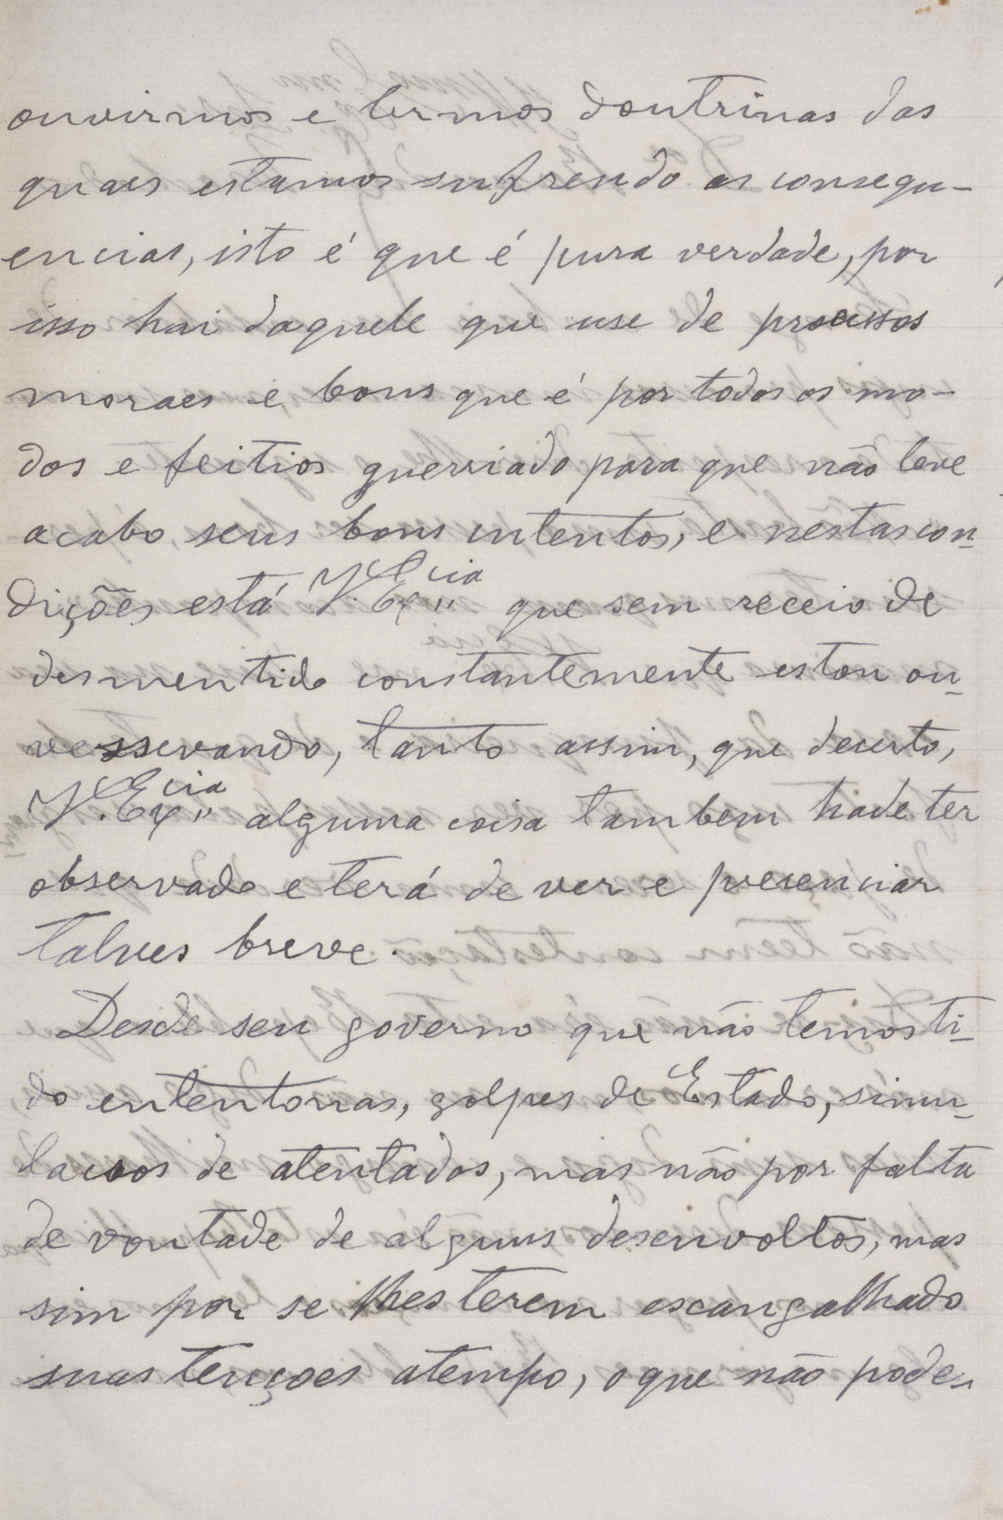 ouvirmos e lermos doutrinas das
quaes estamos sufrendo as consequ-
encias, isto é que é pura verdade, por
isso hai daquele que use de processos
moraes e bons que é por todos os mo-
dos e feitios guerriado para que não leve
acabo seus bons intentos, e nestas con-
dições está V. Ex.cia que sem receio de
desmentido constantemente estou ou-
vessevando, tanto assim, que decerto,
V. Ex.cia alguma coisa tambem hade ter
observado e terá de ver e presenciar
talves breve.
Desde seu governo que não temos ti-
do ententonas, golpes de Estado, simu-
lacros de atentados, mas não por falta
de vontade de alguns desenvoltos, mas
sim por se lhes terem escangalhado
suas tençoes atempo, o que não pode-